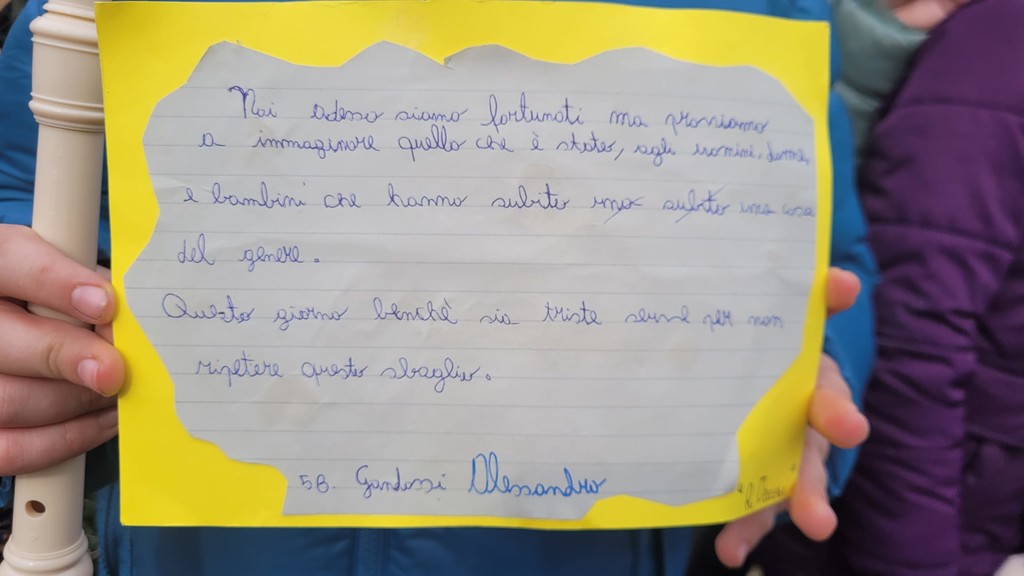 Noi adesso siamo fortunati ma proviamo
a immaginare quello che è stato, agli uomini, donne,
e bambini che hanno subito una subito una cosa
del genere.
Questo giorno benchè sia triste serve per non
ripetere questo sbaglio.
5B. Gandossi Alessandro